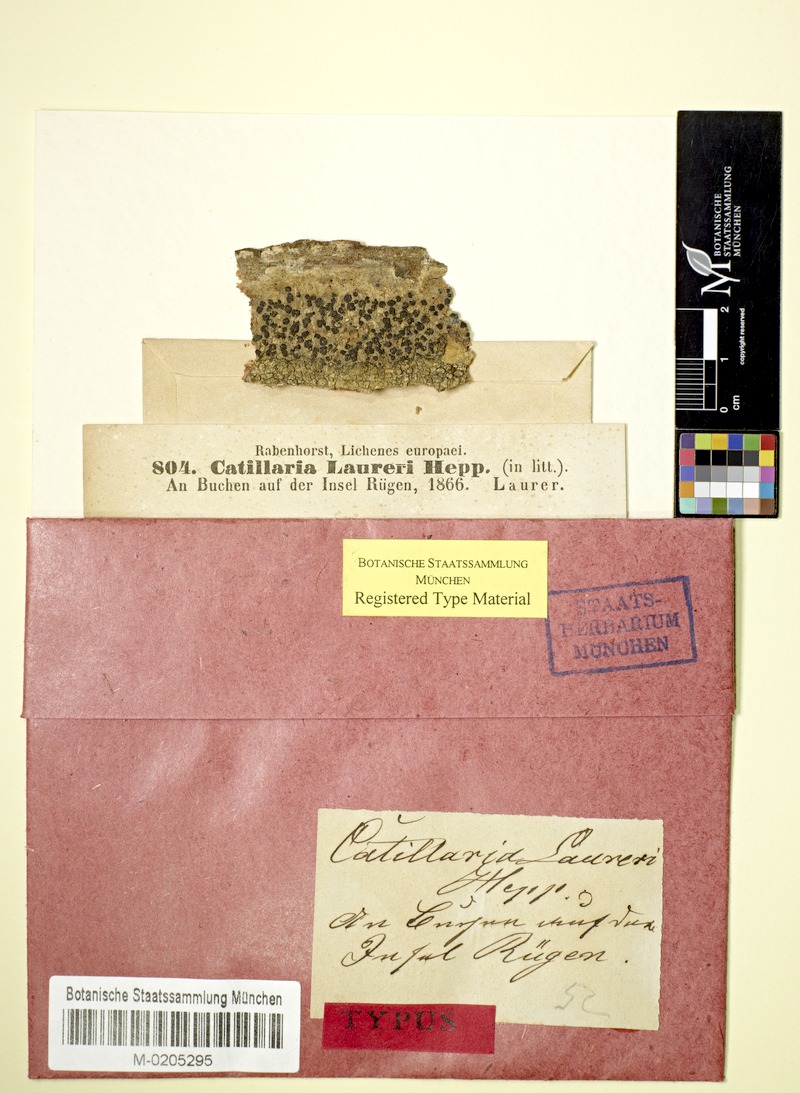 BOTANISCHE
STAATSSAMMLUNG
MÜNCHEN
0 1 2
cm
copyright reserved
Rabenhorst, Lichenes europaei.
804. Catillaria Laureri Hepp. (in litt.).
An Buchen auf der Insel Rügen, 1866. Laurer.
BOTANISCHE STAATSSAMMLUNG
MÜNCHEN
Registered Type Material
STAATS-
HERBARIUM
MÜNCHEN
Catillaria Laureri
Hepp.
An Buchen auf der
Insel Rügen.
52
TYPUS
Botanische Staatssammlung München
M-0205295